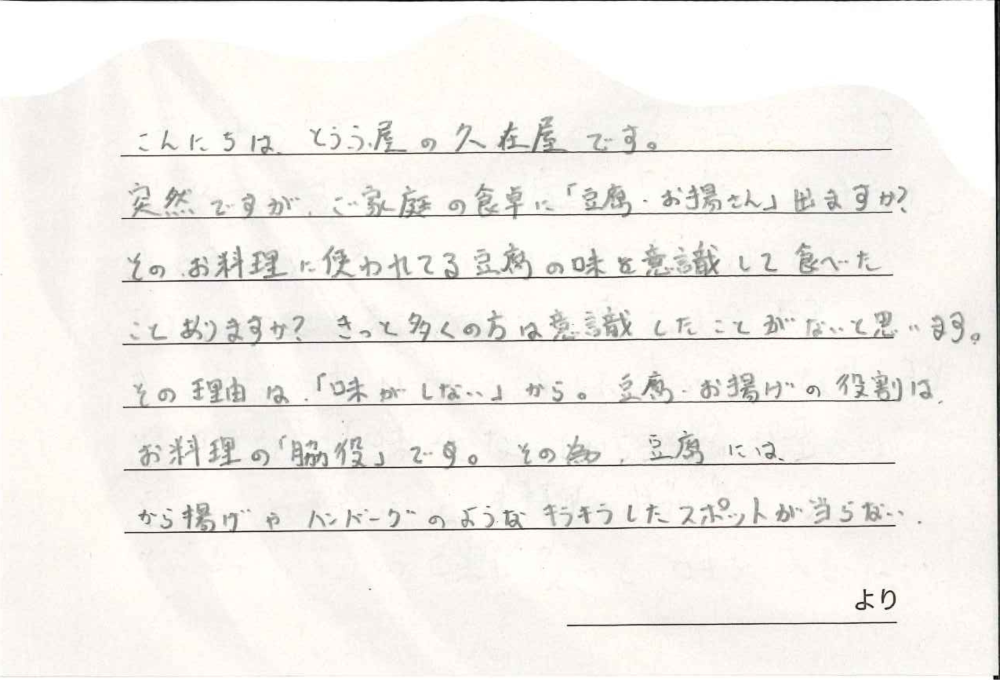 こんにちは、とうふ屋の久在屋です。
突然ですが、ご家庭の食卓に「豆腐・お揚さん」出ますか?
その、お料理に使われてる豆腐の味を意識して食べた
ことありますか? きっと多くの方は意識したことがないと思います。
その理由は、「味がしない」から。豆腐・お揚げの役割は、
お料理の「脇役」です。その為、豆腐には、
から揚げやハンバーグのようなキラキラしたスポットが当らない、
より